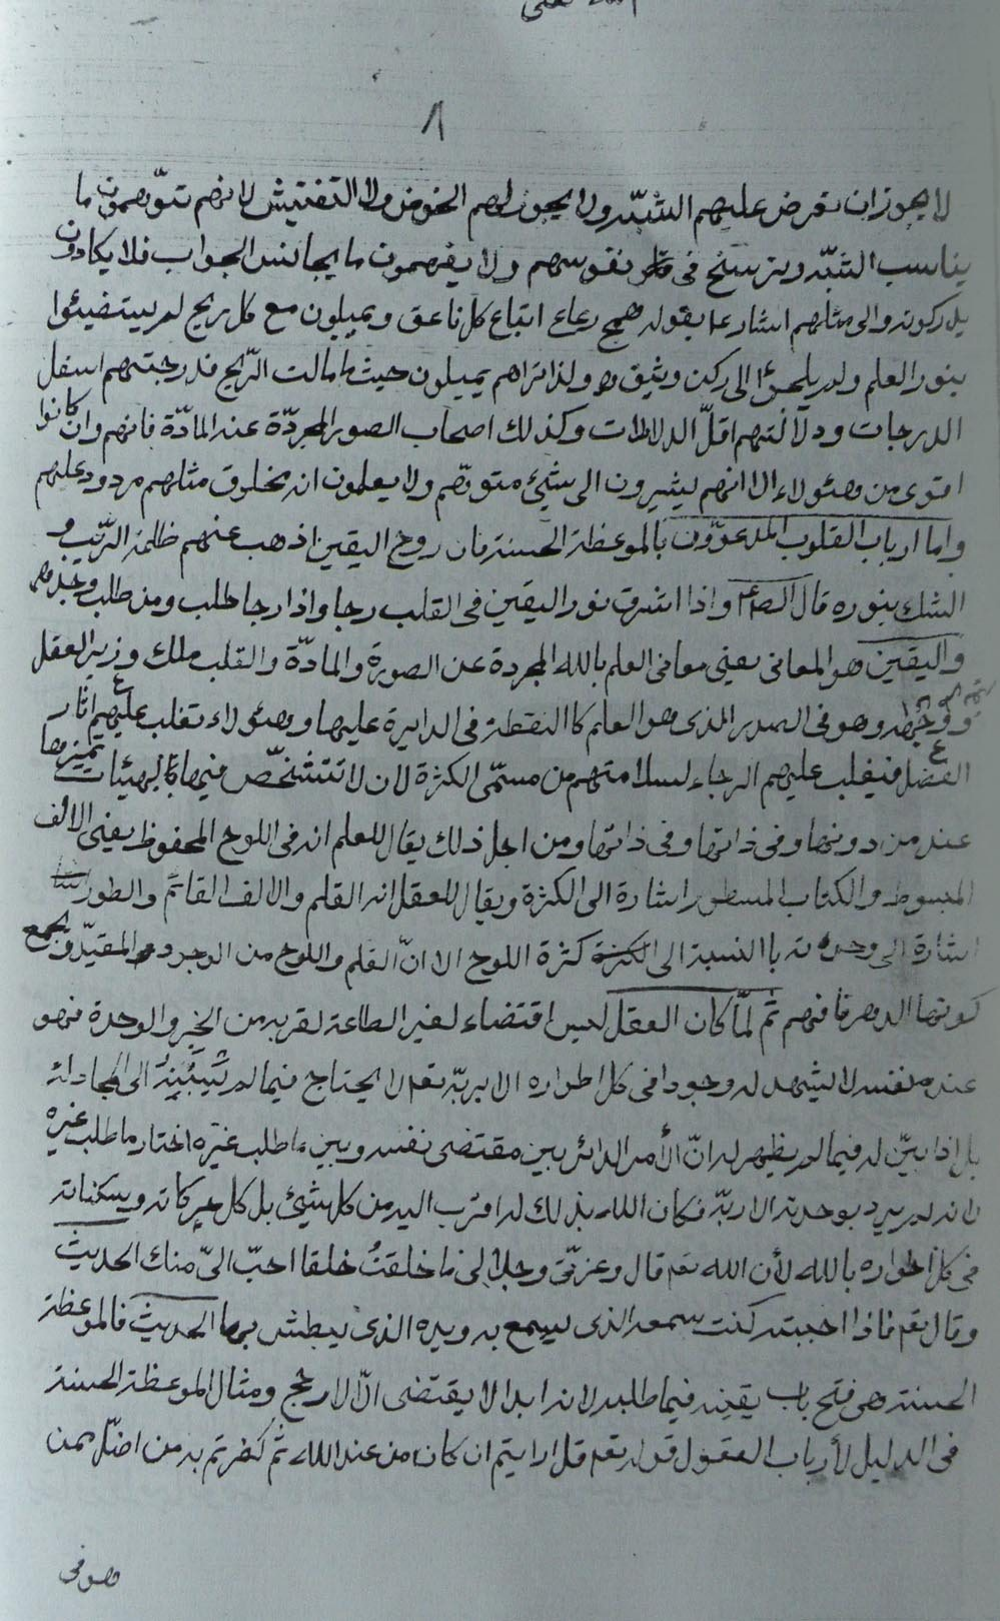 ٨
لا يجوز ان تعرض عليهم الشبه ولا يجوز لهم الخوض ولا التفتيش لانهم يتوهمون ما
يناسب الشبه ويترسخ في نفوسهم ولا يفهمون ما يجانس الجواب فلا يكادون
يدركونه والى مثلهم اشار ع بقوله همج رعاع اتباع كل ناعق ويميلون مع كل ريح لم يستضيئوا
بنور العلم ولم يلجئوا الى ركن وثيق ولذا تراهم يميلون حيث ما مالت الريح فدرجتهم اسفل
الدرجات ودلالتهم اقلّ الدلالات وكذلك اصحاب الصور المجردّة عند المادّة فانهم وان كانوا
اقوى من هؤلاء الا انهم يشيرون الى شيئ متوهّم ولا يعلمون انه مخلوق مثلهم مردود عليهم
واما ارباب القلوب المدعوّون بالموعظة الحسنة فان روح اليقين اذهب عنهم ظلمة الرّيب و
الشك بنوره قال الص ع واذا اشرق نور اليقين في القلب رجا واذا رجا طلب ومن طلب وجد
واليقين هو المعاني يعني معاني العلم بالله المجردة عن الصورة والمادّة والقلب ملك وزيره العقل
وهو في الصدر الذي هو العلم كا النقطة في الدايرة عليها وهؤلاء تغلب عليهم اثار
الفضل فيغلب عليهم الرجاء لسلامتهم من مسمّى الكثرة لان لا تتشخّص فيها بالهيئات تميزها
عند من دونها وفي ذاتها وفي ذاتها ومن اجل ذلك يقال للعلم انه في اللوح المحفوظ يعني الالف
المبسوط والكتاب المسطور اشارة الى الكثرة ويقال للعقل انه القلم والالف القائم والطور
اشارة الى وحدته با النسبة الى كثرة اللوح الا انّ القلم واللوح من الوجود المقيّد يجمع
كونها الدهر فافهم ثم لمّا كان العقل ليس اقتضاء لغير الطاعة لقربه من الخير والوحدة فهو
عند نفسه لا يشهد له وجودا في كل اطواره الا بربّه تعم لا يحتاج فيما لم يتبيّنه الى المجادلة
بل اذا بيّن له فيما لم يظهر له انّ الأمر الدائر بين مقتضى نفسه وبين ما طلب غيره اختار ما طلب غيره
لانه لم يرد بوحدته الا ربّه فكان الله بذلك له اقرب اليه من كل شيئ بل كل حركاته وسكناته
في كل اطواره بالله لأن الله تعم قال وعزتي وجلالي ما خلقتُ خلقا احبّ اليّ منك الحديث
وقال تعم فاذا احببته كنت سمعه الذي يسمع به ويده الذي يبطش بها الحديث فالموعظة
الحسنة هي فتح باب يقينه فيما طلبه لانه ابدا لا يقتضى الّا الارجح ومثال الموعظة الحسنة
في الدليل لأرباب العقول قوله تعم قل ارايتم ان كان من عند الله ثم كفرتم به من اضلّ ممن
هو في